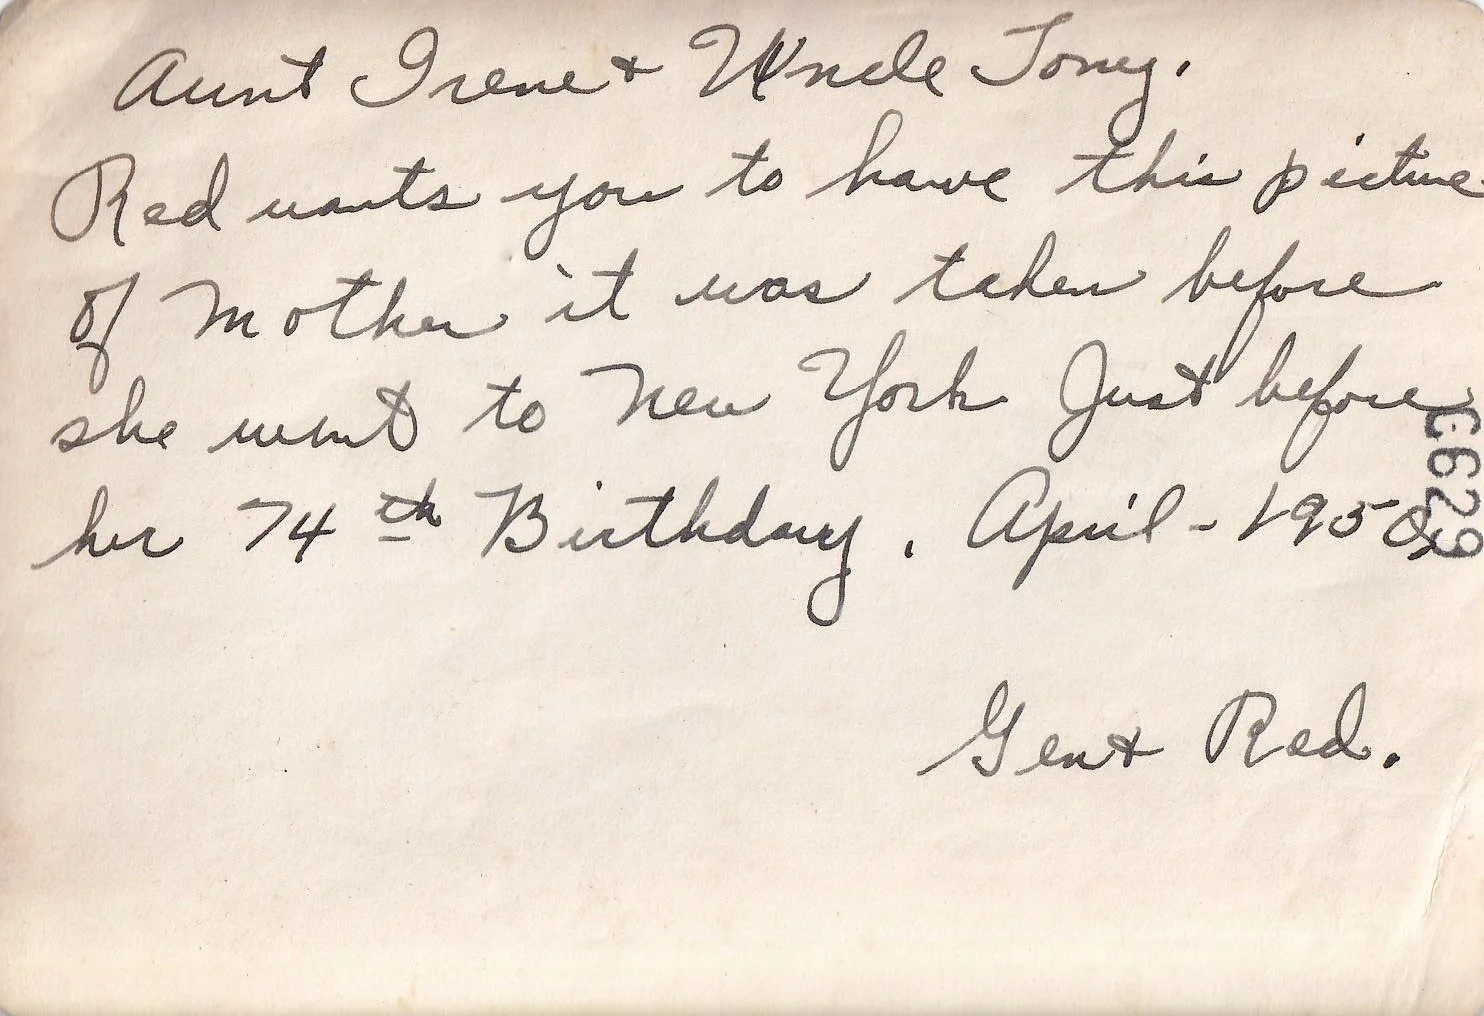 Aunt Irene & Uncle Tony.
Red wants you to have this picture
of Mother it was taken before
she went to New York Just before
her 74th Birthday. April - 1958
Gen & Red.
6629